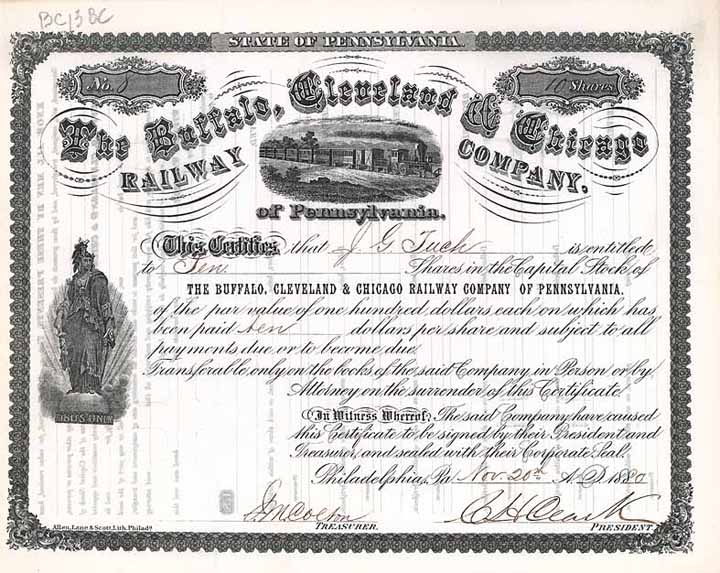 BC13BC
STATE OF PENNSYLVANIA
No. 8
10 Shares
The Buffalo, Cleveland & Chicago
RAILWAY COMPANY.
of Pennsylvania.
This Certifies that J G Tuck is entitled
to Ten Shares in the Capital Stock of
THE BUFFALO, CLEVELAND & CHICAGO RAILWAY COMPANY OF PENNSYLVANIA,
of the par value of one hundred dollars each on which has
been paid ten dollars per share and subject to all
payments due or to become due.
Transferable only on the books of the said Company in Person or by
Attorney on the surrender of this Certificate
In Witness Whereof, The said Company have caused
this Certificate to be signed by their President and
Treasurer, and sealed with their Corporate Seal.
Philadelphia, Pa Nov. 20th A.D. 1880
TREASURER.
C H Clark
PRESIDENT.
Allen, Lane & Scott, Lith. Philada.